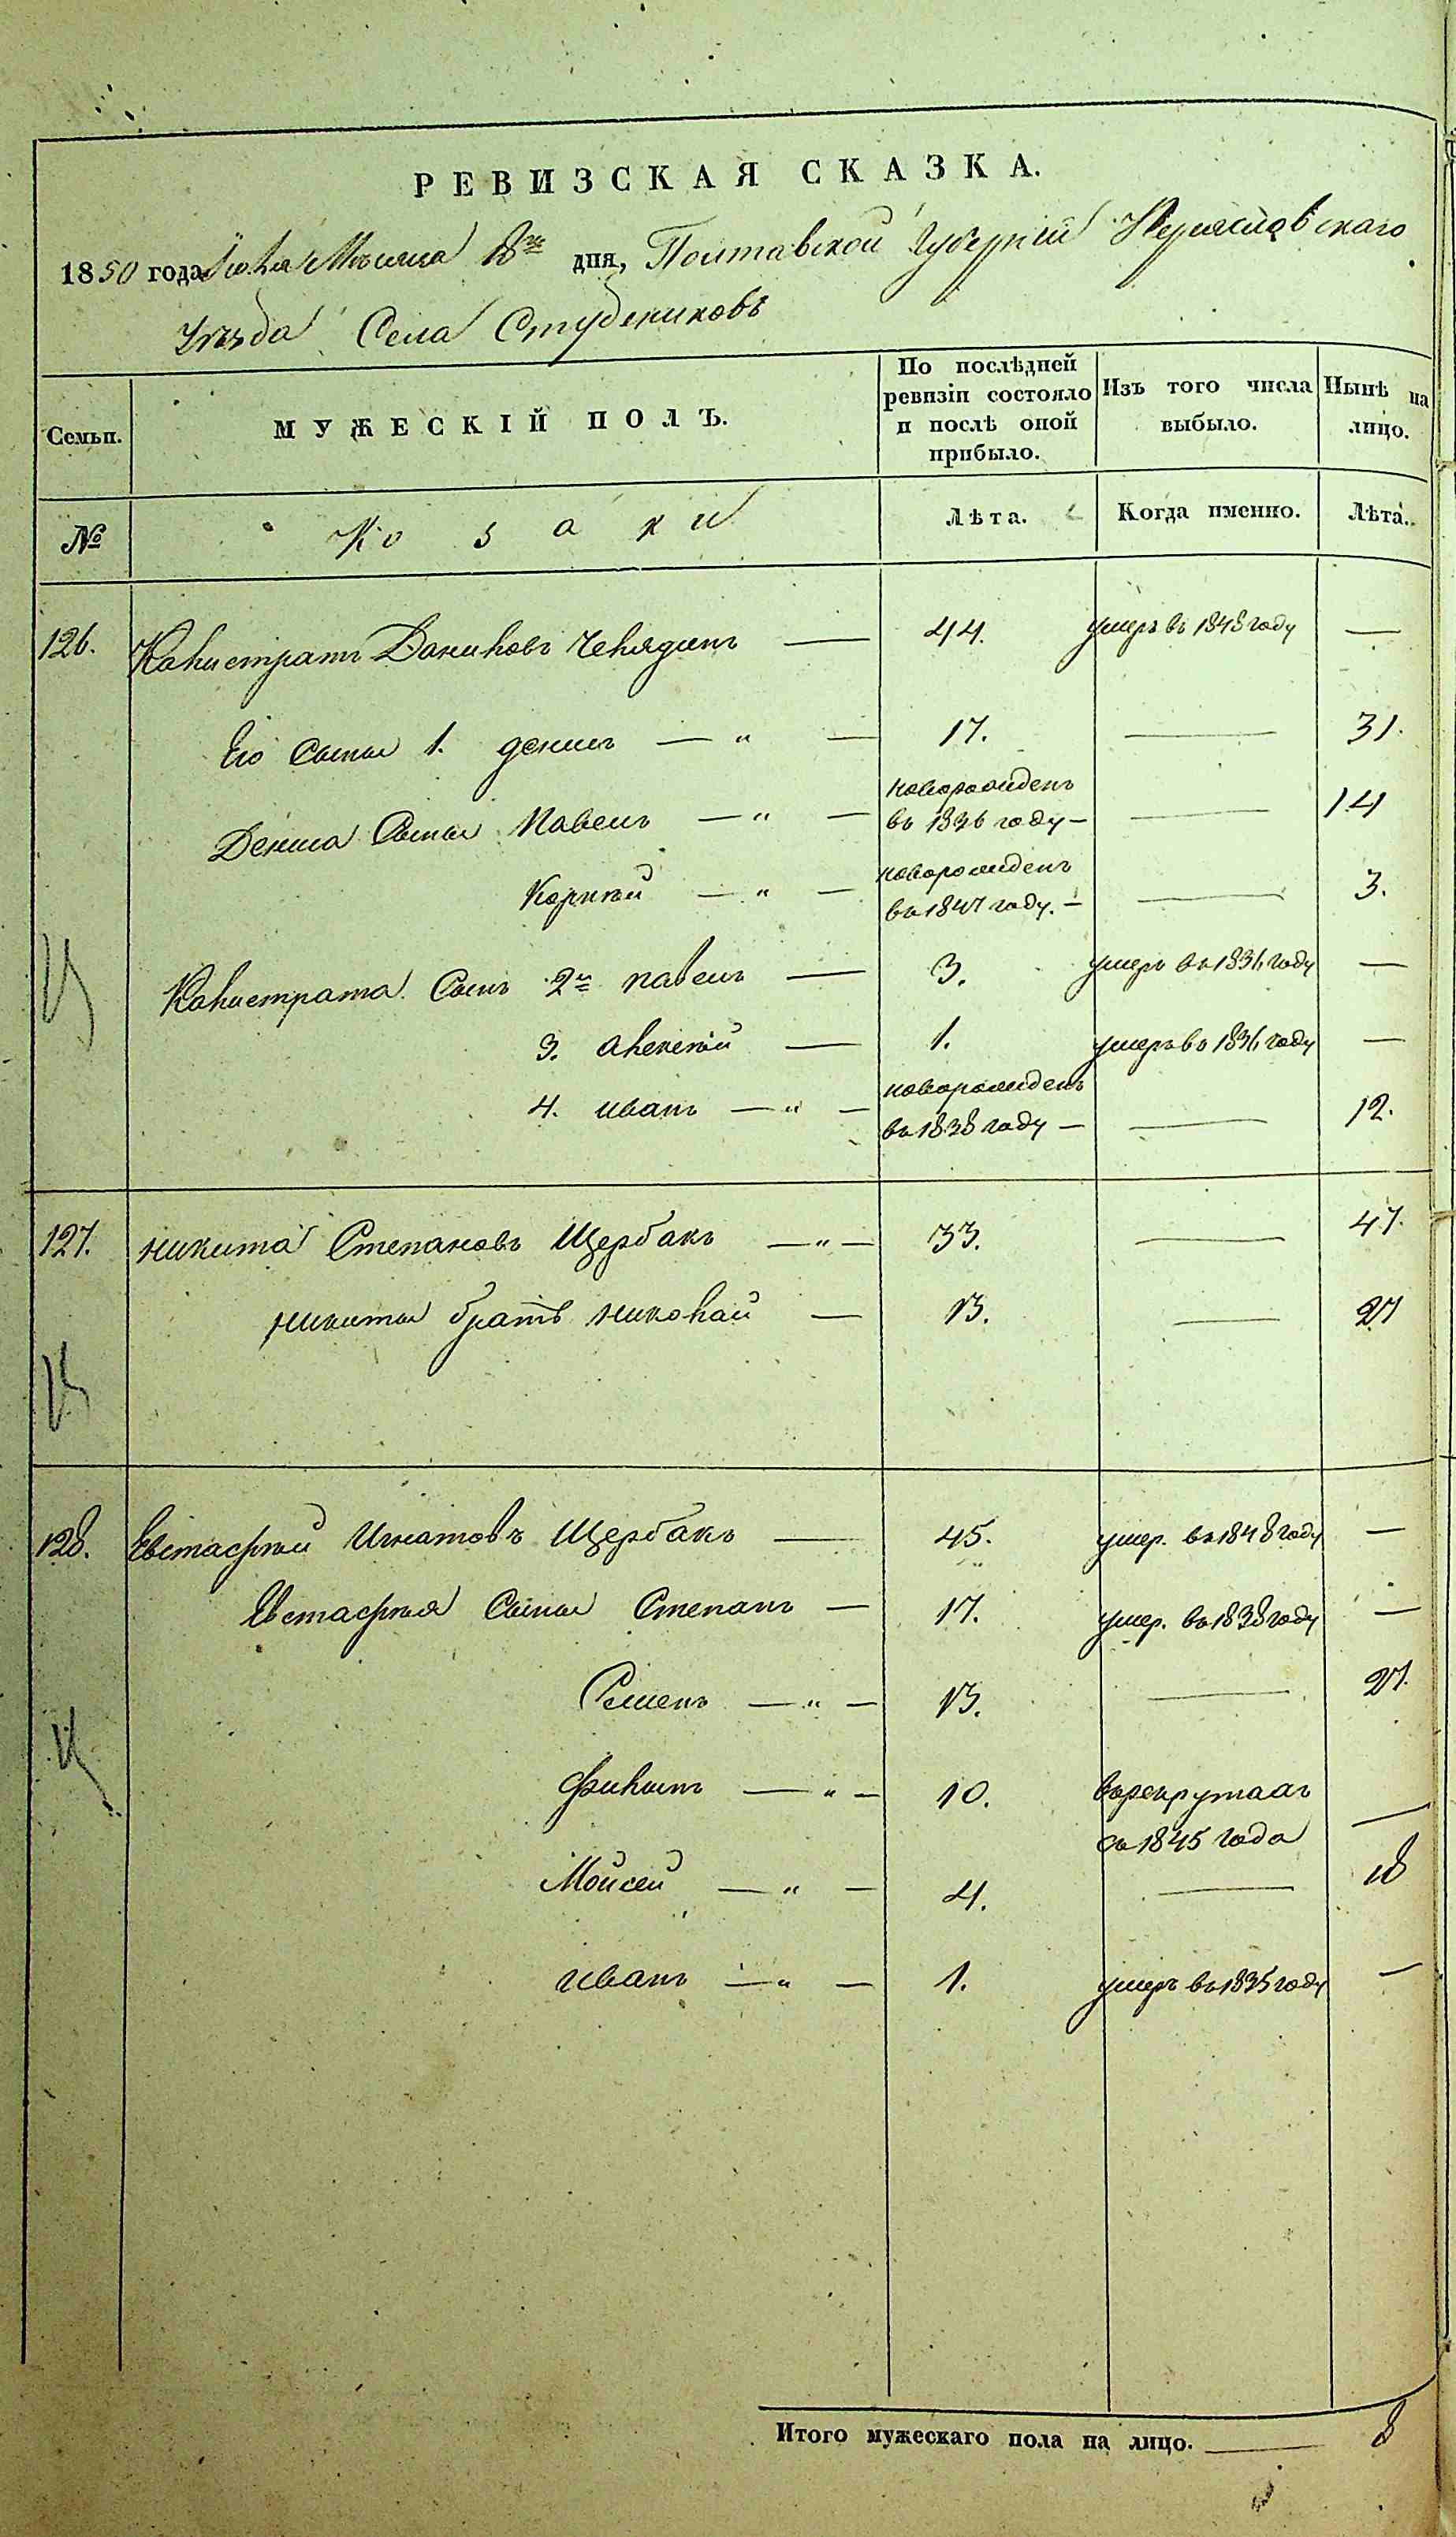 РЕВИЗСКАЯ СКАЗКА.
1850 года Іюля Мѣсяца 18го дня, Полтавской Губерніи Переяславскаго
Уѣзда Села Студениковъ
Семьи.
МУЖЕСКІЙ ПОЛЪ.
По послѣдней ревизіи состояло и послѣ оной прибыло.
Изъ того числа выбыло.
Нынѣ на лицо.
№
Козаки
Лѣта.
Когда именно.
Лѣта.
126. Калистратъ Даниловъ Челядинъ — 44. умеръ въ 1848 году —
Его сыны 1. денисъ — „ — 17. — 31.
Дениса Сыны Павелъ — „ — новорожденъ въ 1836 году — — 14
Корнѣй — „ — новорожденъ въ 1847 году. — — 3.
Калистрата Сынъ 2й павелъ — 3. умеръ въ 1836 году —
3. алексѣй — 1. умеръ въ 1836 году —
4. иванъ — „ — новорожденъ въ 1838 году — — 12.
127. никита Степановъ Щербакъ — „ — 33. — 47.
никиты братъ николай — 13. — 27
128. Евстафѣй Игнатовъ Щербакъ — 45. умер. въ 1848 году —
Евстафѣя Сыны Степанъ — 17. умер. въ 1838 году —
Семенъ — „ — 13. — 27.
Филипъ — „ — 10. въ рекрутахъ съ 1845 года —
Мойсей — „ — 4. — 18
иванъ — „ — 1. умеръ въ 1835 году —
Итого мужескаго пола на лицо. — 8